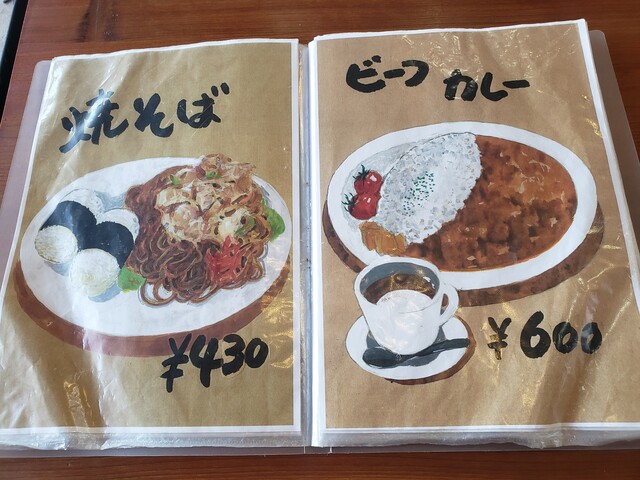 焼そば
¥430
ビーフ カレー
¥600